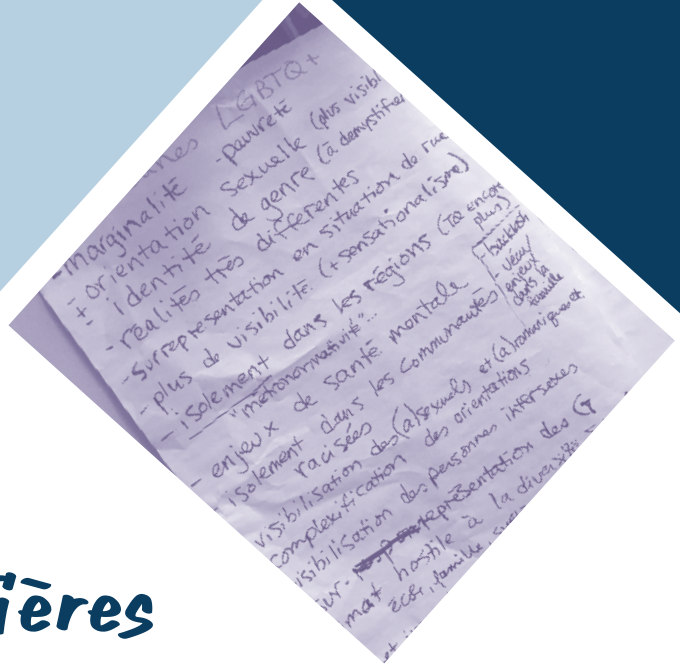 LGBTQ+
- marginalité - pauvreté
+ orientation sexuelle (plus visibl
+ identité de genre (à demystifier
- réalités très différentes
- Surreprésentation en situation de rue
- plus de visibilité (+sensationalisme)
- isolement dans les régions (TQ encore plus)
"métronormativité"...
- backlash
- vécu/
enjeux
dans la
famille
- enjeux de santé mentale
- isolement dans les communautés
racisées
visibilisation des (a)sexuels et (a)romantiques
complexification des orientations
visibilisation des personnes intersexes
sur-représentation des G
mat hostile à la diversité
école, famille
ières